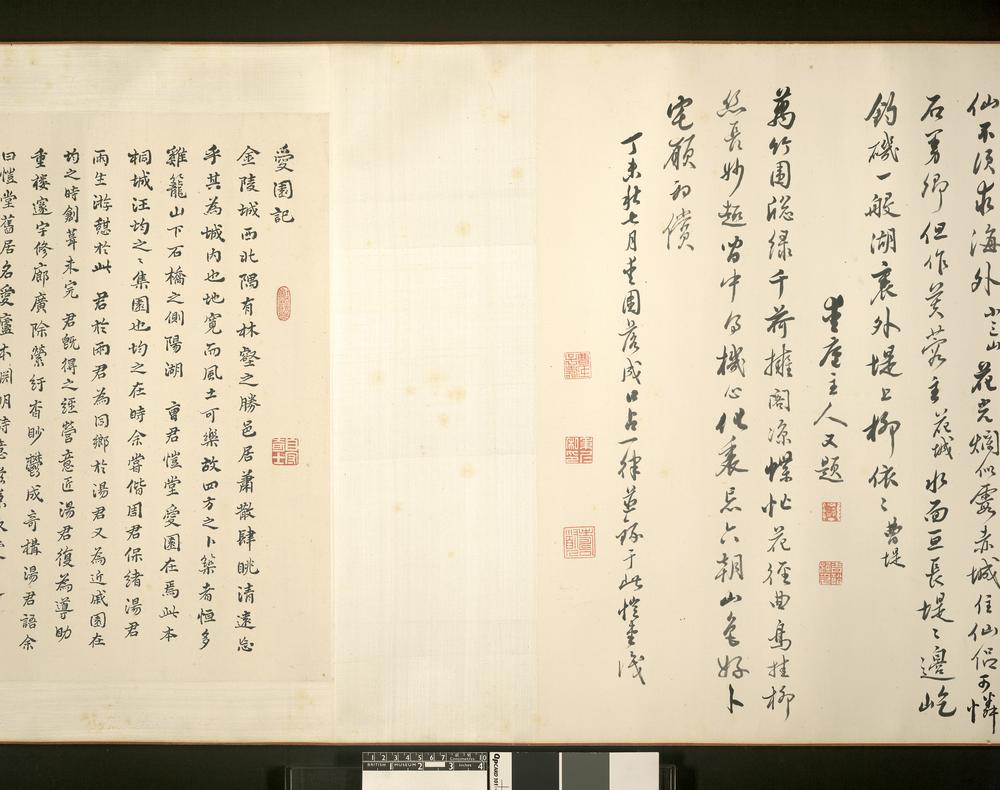 仙不須求海外小三山花光爛似霞赤城住仙侶可憐
石曼卿但作芙蓉主花城水面亘長堤〻邊屹
釣磯一般湖裏外堤上柳依〻曹堤
愛廬主人又題
萬竹圍窓綠千荷擁閣涼蝶忙花徑曲鳥挂柳
絲長妙趣留中得機心化裏忘六朝山色好卜
宅願初償
丁未秋七月愛園落成口占一律並錄于此愷堂識
愛園記
金陵城西北隅有林壑之勝邑居蕭散肆眺清遠忘
乎其為城内也地寛而風土可樂故四方之卜築者恒多
雞籠山下石橋之側陽湖 曹君愷堂愛園在焉此本
桐城汪均之〻集園也均之在時余嘗偕周君保緒湯君
雨生游憩於此 君於兩君為同鄉於湯君又為近戚園在
均之時創葺未完 君既得之經營意匠湯君復為導助
重樓邃宇修廊廣除縈紆杳眇鬱成奇構湯君語余
曰愷堂舊居名愛廬本淵明詩意